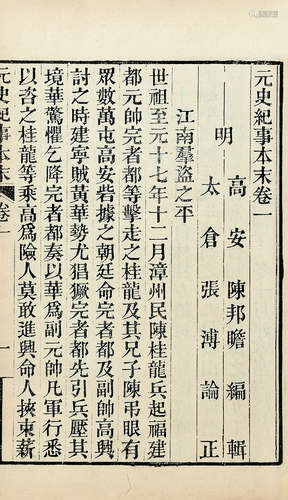 元史紀事本末卷一
明 高安 陳邦瞻 編輯
太倉 張溥 論正
江南羣盜之平
世祖至元十七年十二月漳州民陳桂龍兵起福建
都元帥完者都等擊走之桂龍及其兄子陳弔眼有
眾數萬屯高安砦據之朝廷命完者都及副帥高興
討之時建寧賊黃華勢尤猖獗完者都先引兵壓其
境華驚懼乞降完者都奏以華爲副元帥凡軍行悉
以咨之桂龍等乘高爲險人莫敢進興命人挾束薪
元史紀事本末 卷一 一